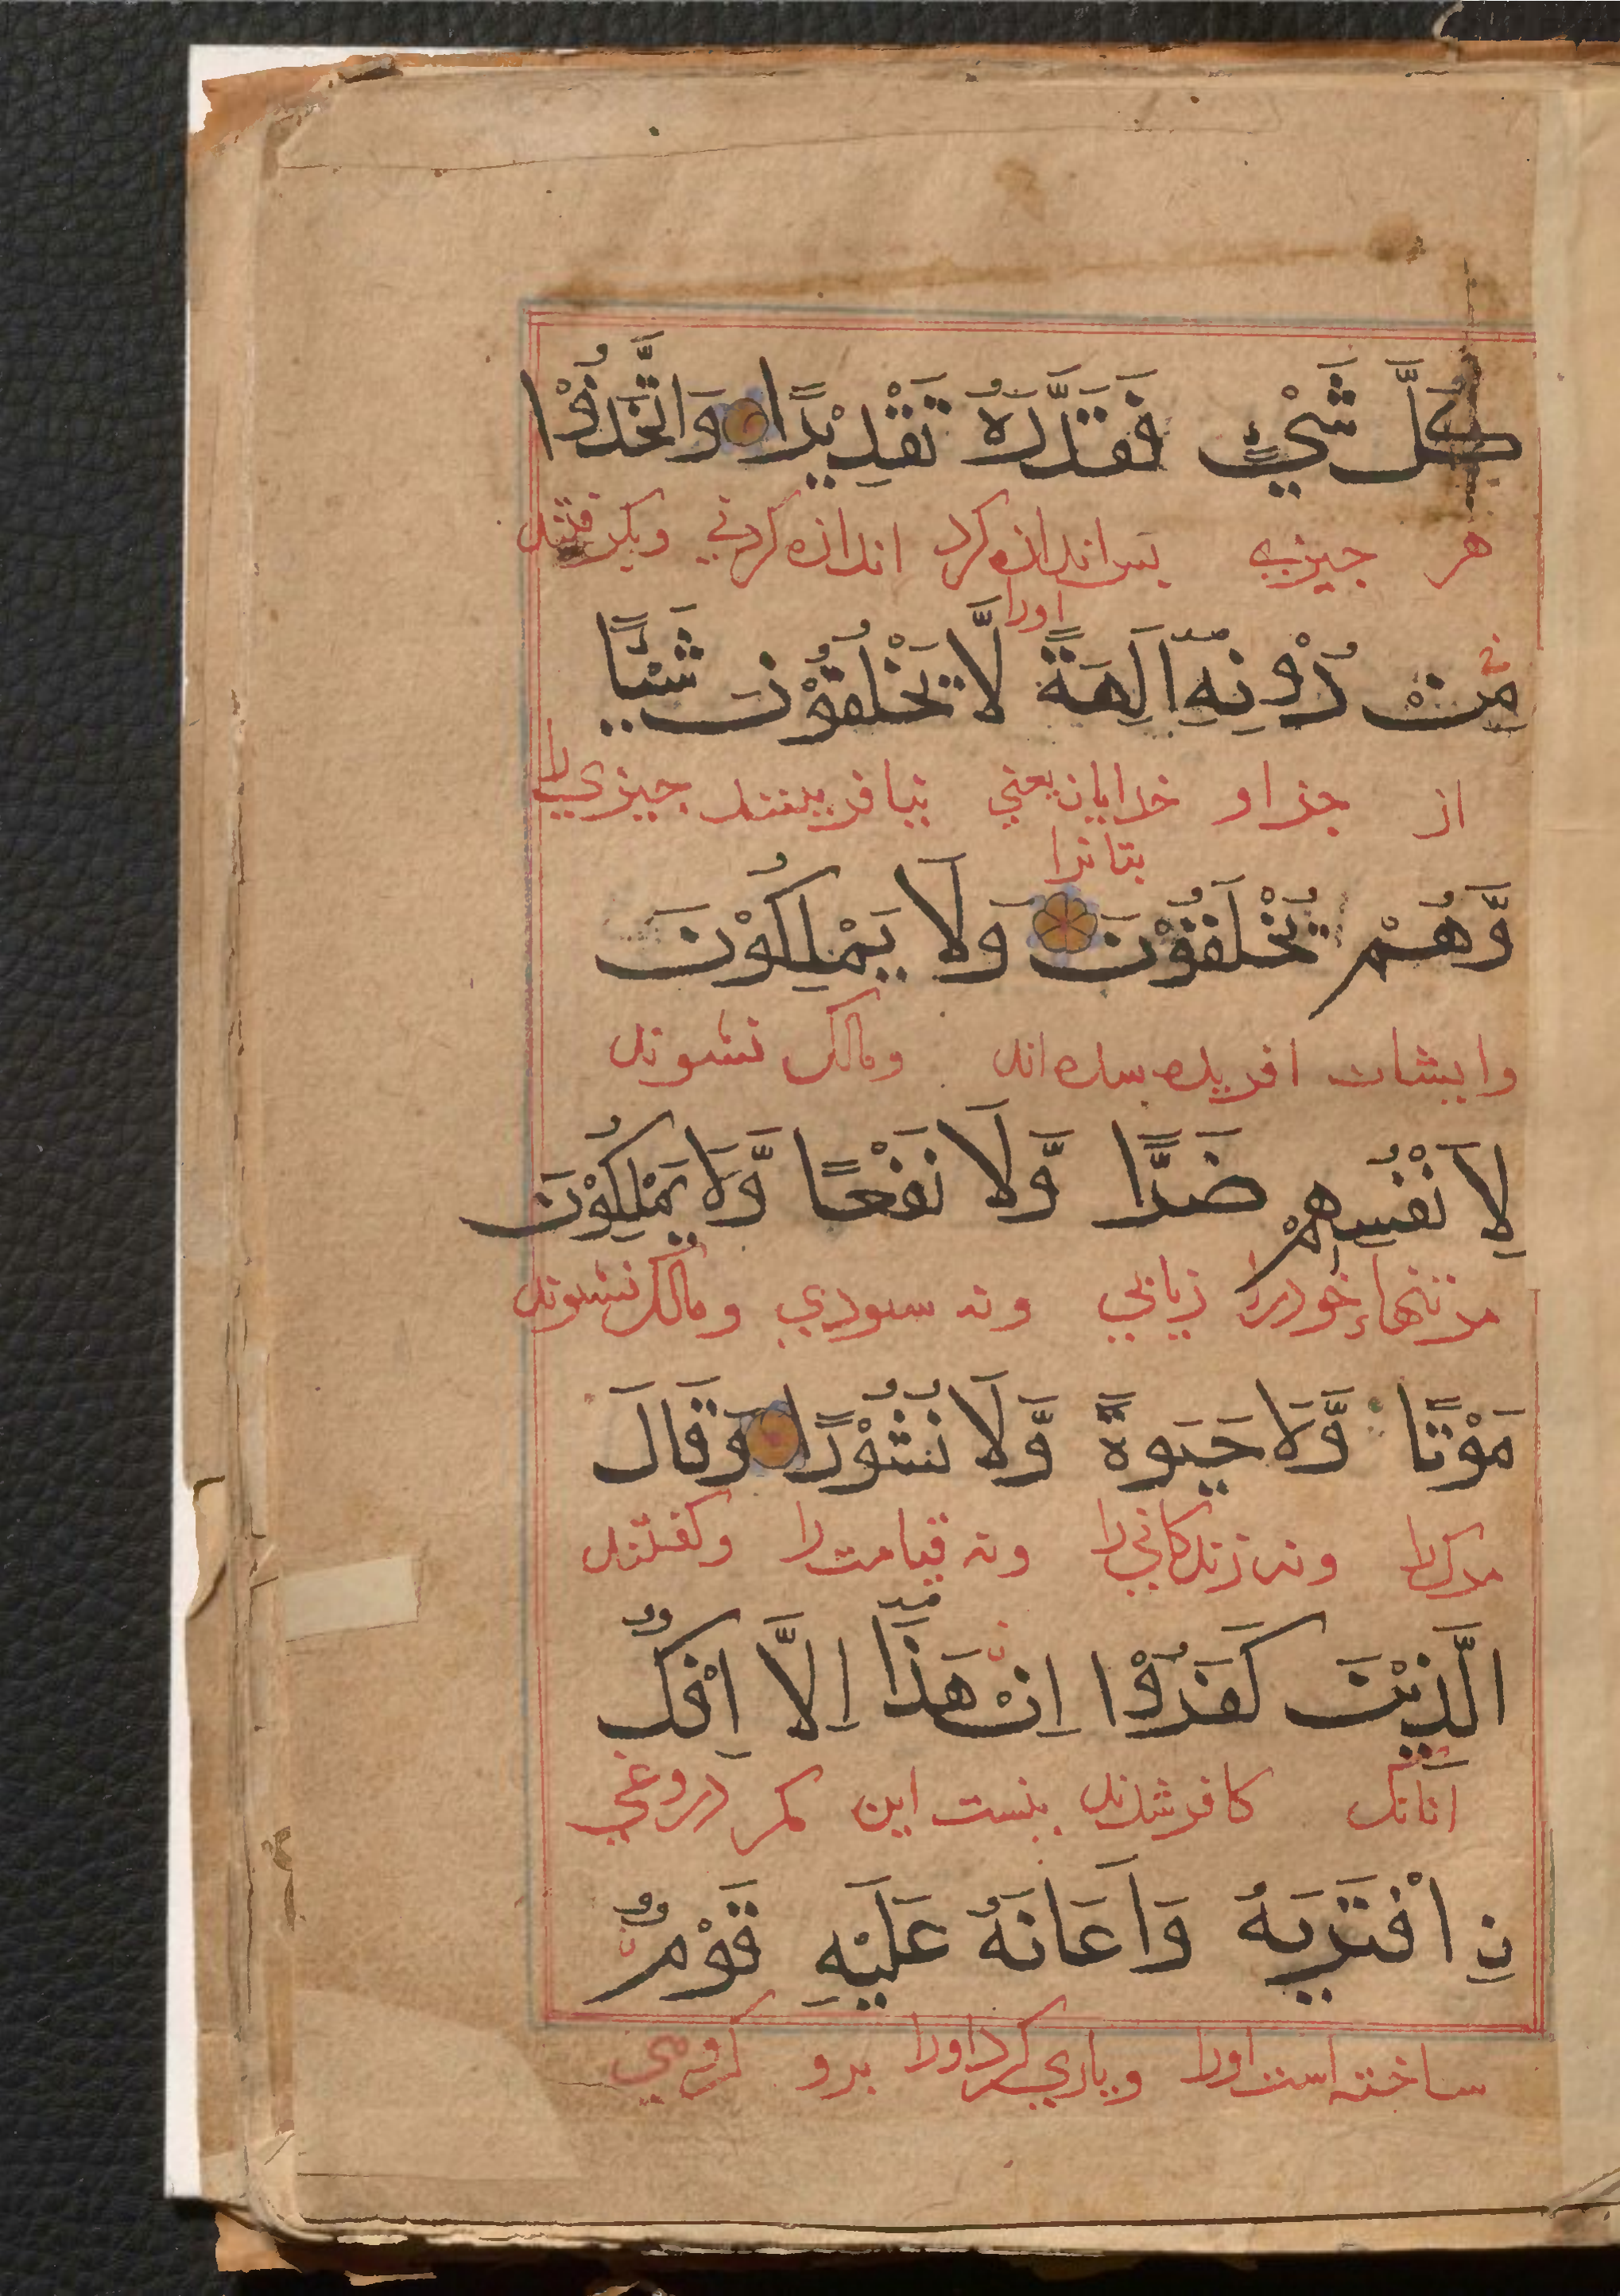 كُلَّ شَيْءٍ فَقَدَّرَهُ تَقْدِيْرًا وَاتَّخَذُوْا
هر چیزی پس اندازه کرد اندازه کردنی وبکرفتند
اورا
مِنْ دُوْنِهِٓ اٰلِهَةً لَّا يَخْلُقُوْنَ شَيْـًٔا
از جز او خدایان یعنی نیافرینند چیزی را
بتانرا
وَّهُمْ يُخْلَقُوْنَ وَلَا يَمْلِكُوْنَ
وایشان افریده شده اند ومالک نشوند
لِاَنْفُسِهِمْ ضَرًّا وَّلَا نَفْعًا وَّلَا يَمْلِكُوْنَ
مرتنهاء خودرا زیانی ونه سودی ومالک نشوند
مَوْتًا وَّلَا حَيٰوةً وَّلَا نُشُوْرًا وَقَالَ
مرک را ونه زندکانی را ونه قیامت را وکفتند
الَّذِيْنَ كَفَرُوْٓا اِنْ هٰذَآ اِلَّآ اِفْكٌ
آنانک کافر شدند نیست این مکر دروغی
نِ افْتَرٰىهُ وَاَعَانَهٗ عَلَيْهِ قَوْمٌ
ساخته است اورا ویاری کرد اورا برو کروهی